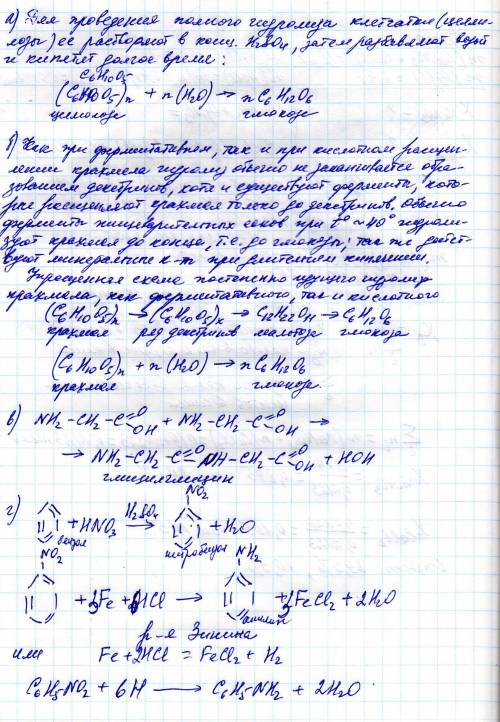 а) Для проведения полного гидролиза клетчатки (целлю-
лозы) её растворяют в конц. H2SO4, затем разбавляют водой
и кипятят долгое время:
C6H10O5
(C6H10O5)n + n(H2O) → n C6H12O6
целлюлоза глюкоза
б) Как при ферментативном, так и при кислотном расщеп-
лении крахмала гидролиз обычно не заканчивается обра-
зованием декстринов, хотя и существуют ферменты, кото-
рые расщепляют крахмал только до декстринов. Обычно
ферменты пищеварительных соков при t° ~ 40° гидроли-
зуют крахмал до конца, т.е. до глюкозы; так же дейст-
вуют минеральные к-ты при длительном кипячении.
Упрощенная схема постепенно идущего гидролиза
крахмала, как ферментативного, так и кислотного
(C6H10O5)n → (C6H10O5)x → C12H22O11 → C6H12O6
крахмал ряд декстринов мальтоза глюкоза
(C6H10O5)n + n(H2O) → n C6H12O6
крахмал глюкоза
в) NH2-CH2-C=O OH + NH2-CH2-C=O OH →
→ NH2-CH2-C=O NH-CH2-C=O OH + HOH
глицилглицин
г) NO2
+ HNO3 H2SO4 → + H2O
бензол нитробензол
NO2 NH2
+ 3Fe + 6HCl → + 3FeCl2 + 2H2O
анилин
р-я Зинина
или Fe + 2HCl = FeCl2 + H2
C6H5NO2 + 6H → C6H5NH2 + 2H2O